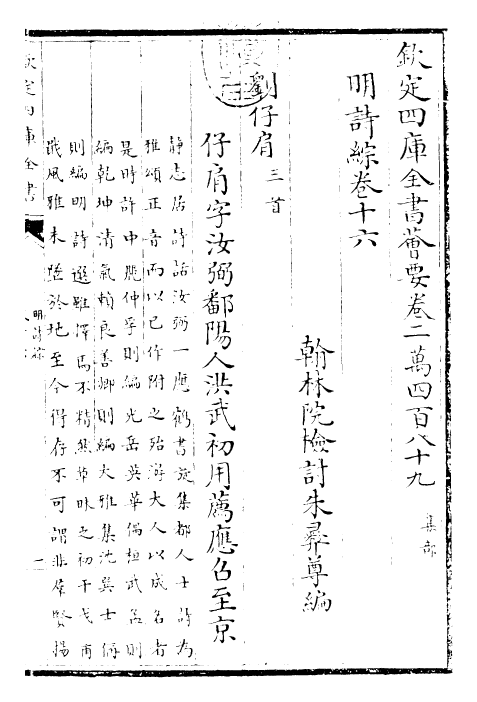 欽定四庫全書薈要卷二萬四百八十九
集部
明詩綜卷十六
翰林院檢討朱彞尊編
劉仔肩三首
仔肩字汝弼鄱陽人洪武初用薦應召至京
静志居詩話汝弼一應鶴書旋集都人士詩為
雅頌正音而以已作附之殆游大人以成名者
是時許中麗仲孚則編光岳英華偶桓武孟則
編乾坤清氣賴良善卿則編大雅集沈巽士偁
則編明詩選雖擇焉不精然草昧之初干戈甫
戢風雅未墜於地至今得存不可謂非羣賢揚
欽定四庫全書
明詩綜
一